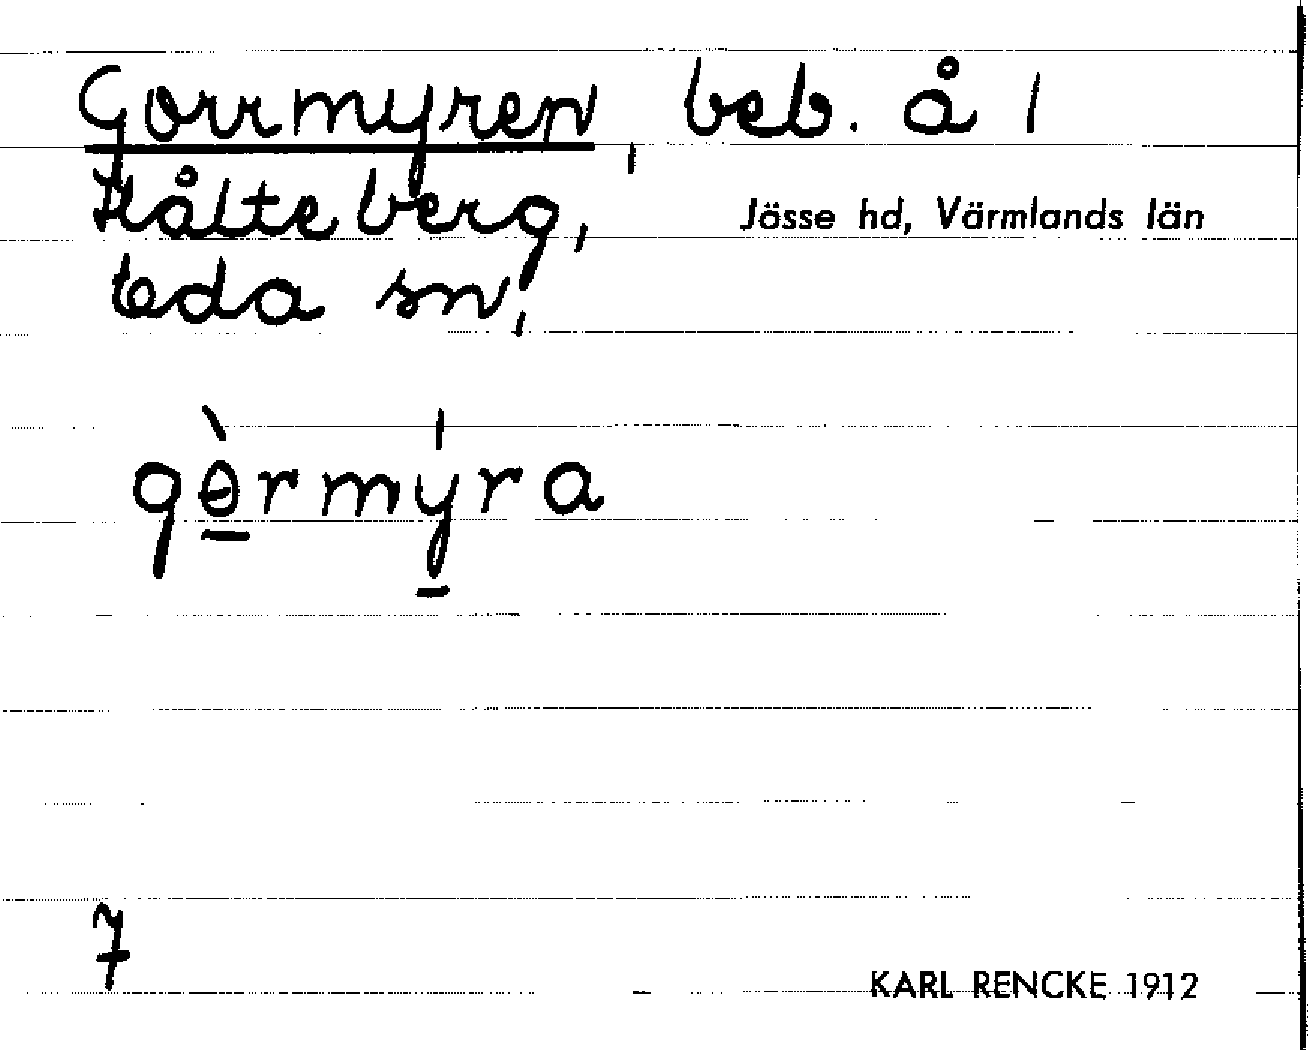 Gorrmyren, beb. å 1
Hålteberg,
Jösse hd, Värmlands län
Eda sn,
gɵ̀rmýra
7
KARL RENCKE 1912